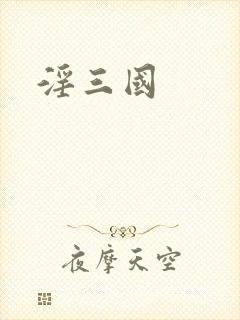 淫三國
夜摩天空